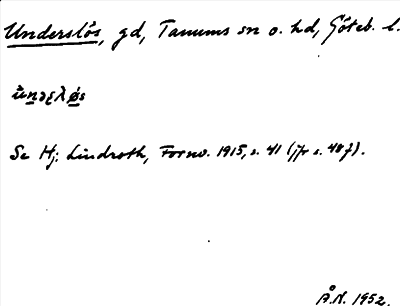 Underslös, gd, Tanums sn o. hd, Göteb. l.
Se Hj. Lindroth, Fornv. 1915, s. 41 (jfr s. 40 f).
Å.N. 1952.